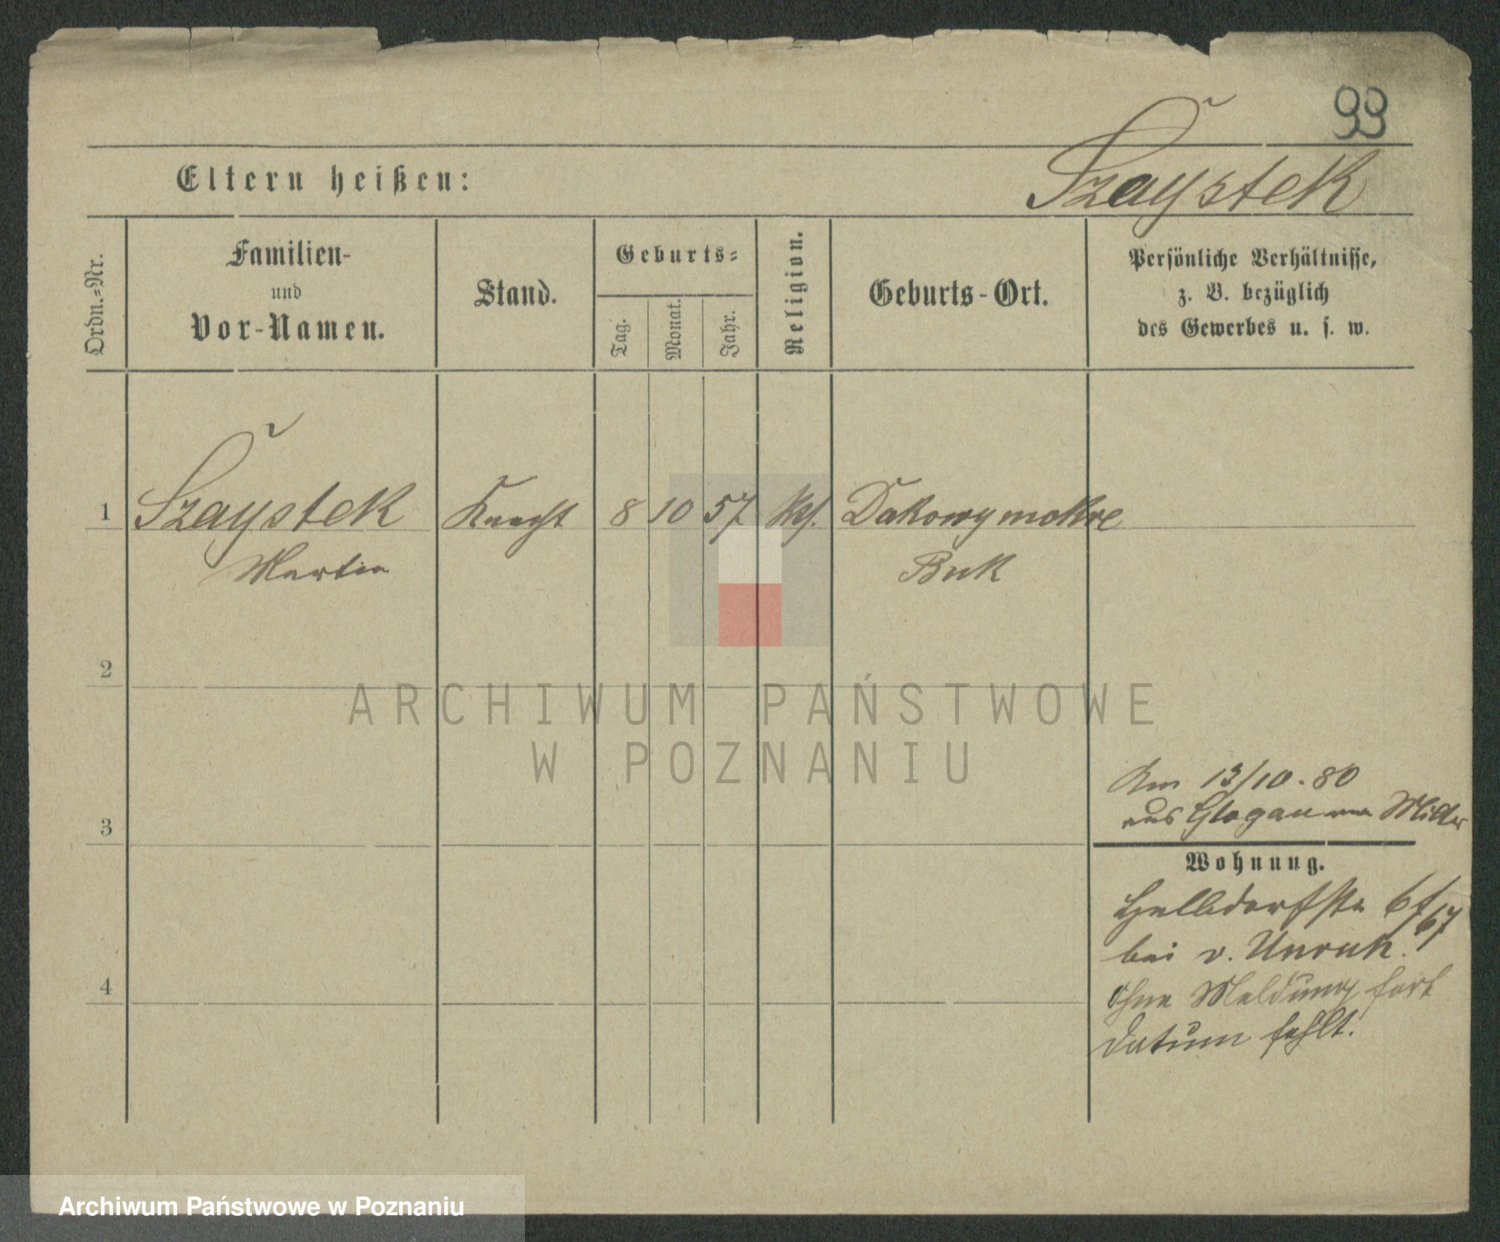 99
Szaystek
Eltern heißen:
Ordn.-Nr.
Familien-
und
Vor-Namen.
Stand.
Geburts-
Tag.
Monat.
Jahr.
Religion.
Geburts-Ort.
Persönliche Verhältnisse,
z. B. bezüglich
des Gewerbes u. s. w.
1 Szaystek Knecht 8 10 57 kth. Dakowy mokre
Martin Buk
2
ARCHIWUM PAŃSTWOWE
W POZNANIU
3
13/10.80
aus Glogau
Wohnung.
Halbdorfstr
bei v. Unruh.
ohne Meldung fort
Datum fehlt.
4
Archiwum Państwowe w Poznaniu